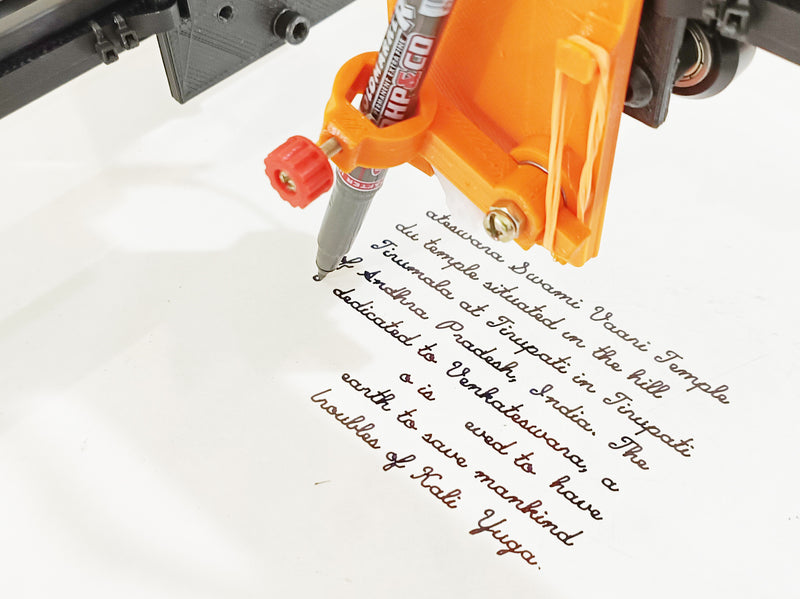 HP&CO
PERMANENT EXTRA FINE
ateswara Swami Vaari Temple
du temple situated in the hill
Tirumala at Tirupati in Tirupati
of Andhra Pradesh, India. The
dedicated to Venkateswara, a
o is eved to have
earth to save mankind
troubles of Kali Yuga.